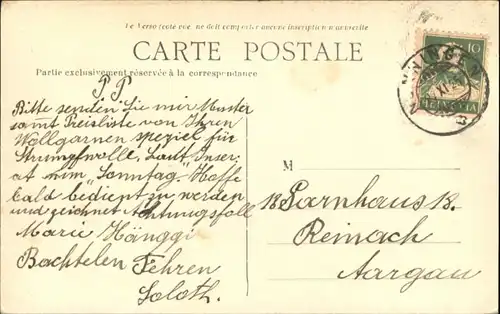 Le Verso (côté vue) ne doit comporter aucune inscription manuscrite
CARTE POSTALE
Partie exclusivement réservée à la correspondance
P P
Bitte senden Sie mir Muster
samt Preisliste von Ihren
Wollgarnen speziel für
Strumpfwolle, Laut Inser:
at mim „Sonntag" Hoffe
bald bedient zu werden
und zeichnet Achtungsfoll
Marie Hänggi
Bachtelen Fehren
Soloth.
M
Reinach
Aargau
10
HELVETIA